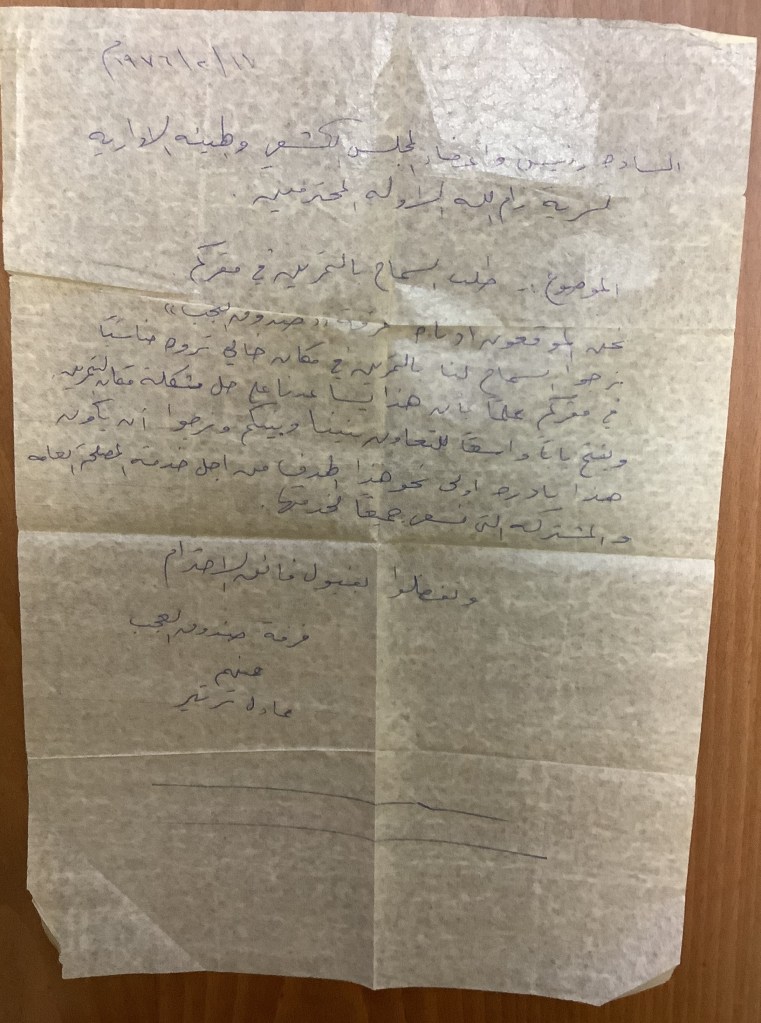 ١٩٧٦/٢/١٧م
الساده رئيس واعضاء المجلس الكشفي والهيئه الاداريه
لسرية رام الله الاولى المحترمين.
الموضوع :- طلب السماح بالتمرين في مقركم
نحن الموقعون ادناه فرقة "صندوق العجب"
نرجوا السماح لنا بالتمرين في مكان خالي تروه مناسبًا
في مقركم علمًا بان هذا يساعدنا على حل مشكلة مكان التمرين
ويفتح بابًا واسعًا للتعاون بيننا وبينكم ونرجوا أن يكون
هذا بادره اولى نحو هذا الهدف من اجل خدمة المصلحة العامه
والمشتركه التي نسعى جميعًا لخدمتها.
وتفضلوا بقبول فائق الاحترام
فرقة صندوق العجب
عنهم
عادل ترتير